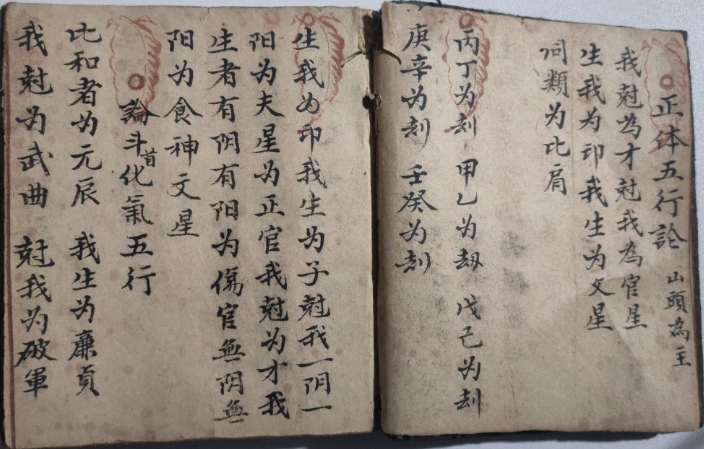 正体五行論 山頭為主
我尅為才尅我為官星
生我为印我生为文星
同類为比肩
丙丁为刦 甲乙为刼 戊己为刦
庚辛为刦 壬癸为刦
生我为印我生为子尅我一阴一
阳为夫星为正官我尅为才我
生者有阴有阳为傷官無阴無
阳为食神文星
論斗首化氣五行
比和者为元辰 我生为廉貞
我尅为武曲 尅我为破軍